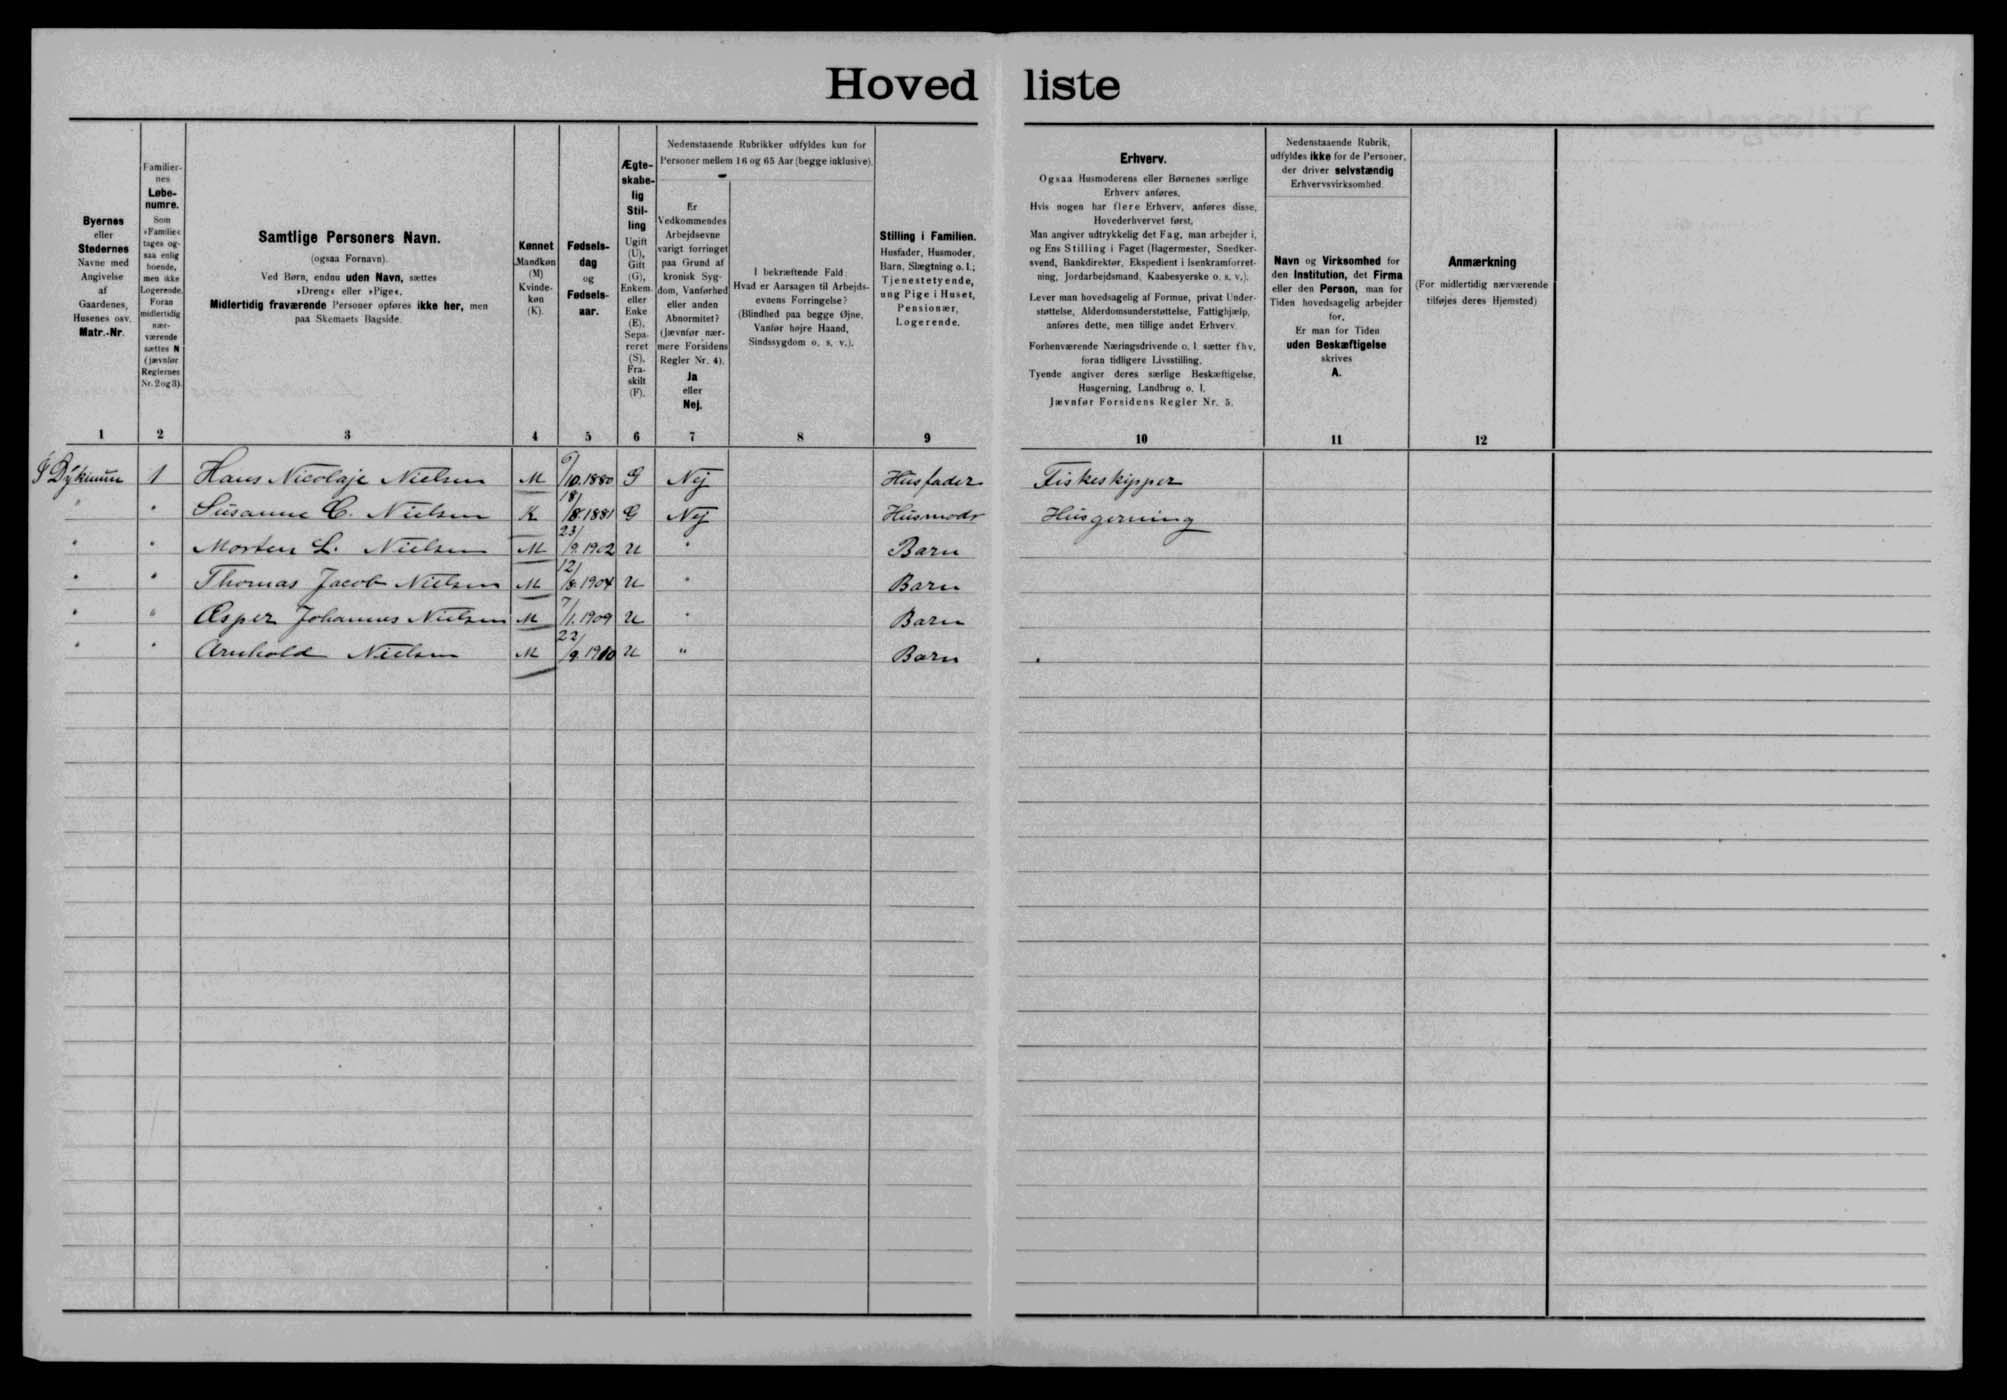 Hovedliste
Byernes
eller
Stedernes
Navne med
Angivelse
af
Gaardenes,
Husenes osv.
Matr.-Nr.
Familier-
nes
Løbe-
numre.
Som
»Familie«
tages og-
saa enlig
boende,
men ikke
Logerende.
Foran
midlertidig
nær-
værende
sættes N
(jævnfør
Reglernes
Nr. 2 og 3).
Samtlige Personers Navn.
(ogsaa Fornavn).
Ved Børn, endnu uden Navn, sættes
»Dreng« eller »Pige«.
Midlertidig fraværende Personer opføres ikke her, men
paa Skemaets Bagside.
Kønnet
Mandkøn
(M)
Kvinde-
køn
(K).
Fødsels-
dag
og
Fødsels-
aar.
Ægte-
skabe-
lig
Stil-
ling
Ugift
(U),
Gift
(G),
Enkem.
eller
Enke
(E),
Sepa-
reret
(S),
Fra-
skilt
(F).
Nedenstaaende Rubrikker udfyldes kun for
Personer mellem 16 og 65 Aar (begge inklusive).
Er
Vedkommendes
Arbejdsevne
varigt forringet
paa Grund af
kronisk Syg-
dom, Vanførhed
eller anden
Abnormitet?
(Jævnfør nær-
mere Forsidens
Regler Nr. 4).
Ja
eller
Nej.
I bekræftende Fald:
Hvad er Aarsagen til Arbejds-
evnens Forringelse?
(Blindhed paa begge Øjne,
Vanfør højre Haand,
Sindssygdom o. s. v.).
Stilling i Familien.
Husfader, Husmoder,
Barn, Slægtning o. l.;
Tjenestetyende,
ung Pige i Huset,
Pensionær,
Logerende.
Erhverv.
Ogsaa Husmoderens eller Børnenes særlige
Erhverv anføres.
Hvis nogen har flere Erhverv, anføres disse,
Hovederhvervet først.
Man angiver udtrykkelig det Fag, man arbejder i,
og Ens Stilling i Faget (Bagermester, Snedker-
svend, Bankdirektør, Ekspedient i Isenkramforret-
ning, Jordarbejdsmand, Kaabesyerske o. s. v.).
Lever man hovedsagelig af Formue, privat Under-
støttelse, Alderdomsunderstøttelse, Fattighjælp,
anføres dette, men tillige andet Erhverv.
Forhenværende Næringsdrivende o. l. sætter fhv.
foran tidligere Livsstilling.
Tyende angiver deres særlige Beskæftigelse,
Husgerning, Landbrug o. l.
Jævnfør Forsidens Regler Nr. 5.
Nedenstaaende Rubrik,
udfyldes ikke for de Personer,
der driver selvstændig
Erhvervsvirksomhed.
Navn og Virksomhed for
den Institution, det Firma
eller den Person, man for
Tiden hovedsagelig arbejder
for.
Er man for Tiden
uden Beskæftigelse
skrives
A.
Anmærkning
(For midlertidig nærværende
tilføjes deres Hjemsted)
1 2 3 4 5 6 7 8 9 10 11 12
1 Hans Nicolaje Nielsen M 9/10.1880 G Nej Husfader Fiskeskipper
" " Susanne C. Nielsen K 18/8.1881 G Nej Husmodr Husgerning
" " Morten L. Nielsen M 23/9.1902 U " Barn
" " Thomas Jacob Nielsen M 12/8.1904 U " Barn
" " Esper Johannes Nielsen M 7/1.1909 U " Barn
" " Arnhold Nielsen M 22/9.1910 U " Barn